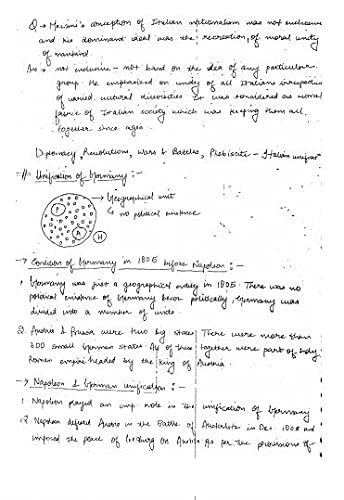 Q → Mazzini's conception of Italian nationalism was not exclusive
and his dominant ideal was the recreation, of moral unity
of mankind.
Ans → not exclusive - not based on the idea of any particular
group. He emphasized on unity of all Italians irrespective
of varied cultural diversities. It was considered as moral
fabric of Italian society which was keeping them all
together since ages.
Diplomacy, Revolutions, Wars & Battles, Plebiscite - Italian unification
Unification of Germany :-
→ Geographical unit
↳ no political existence
P
A
H
→ Condition of Germany in 1805 before Napoleon :-
1. Germany was just a geographical entity in 1805. There was no
political existence of Germany becoz politically, Germany was
divided into a number of units.
2. Austria & Prussia were two big states. There were more than
300 small German states. All of these together were part of holy
Roman empire headed by the King of Austria.
→ Napoleon & German unification :-
1. Napoleon played an imp. role in the unification of Germany
2. Napoleon defeated Austria in the Battle of Austerlitz in Dec. 1805 and
imposed the peace of on Austria. As per the provisions of